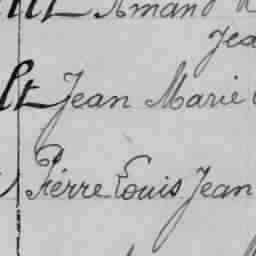 Amand
Jea
lt Jean Marie
Pierre Louis Jean